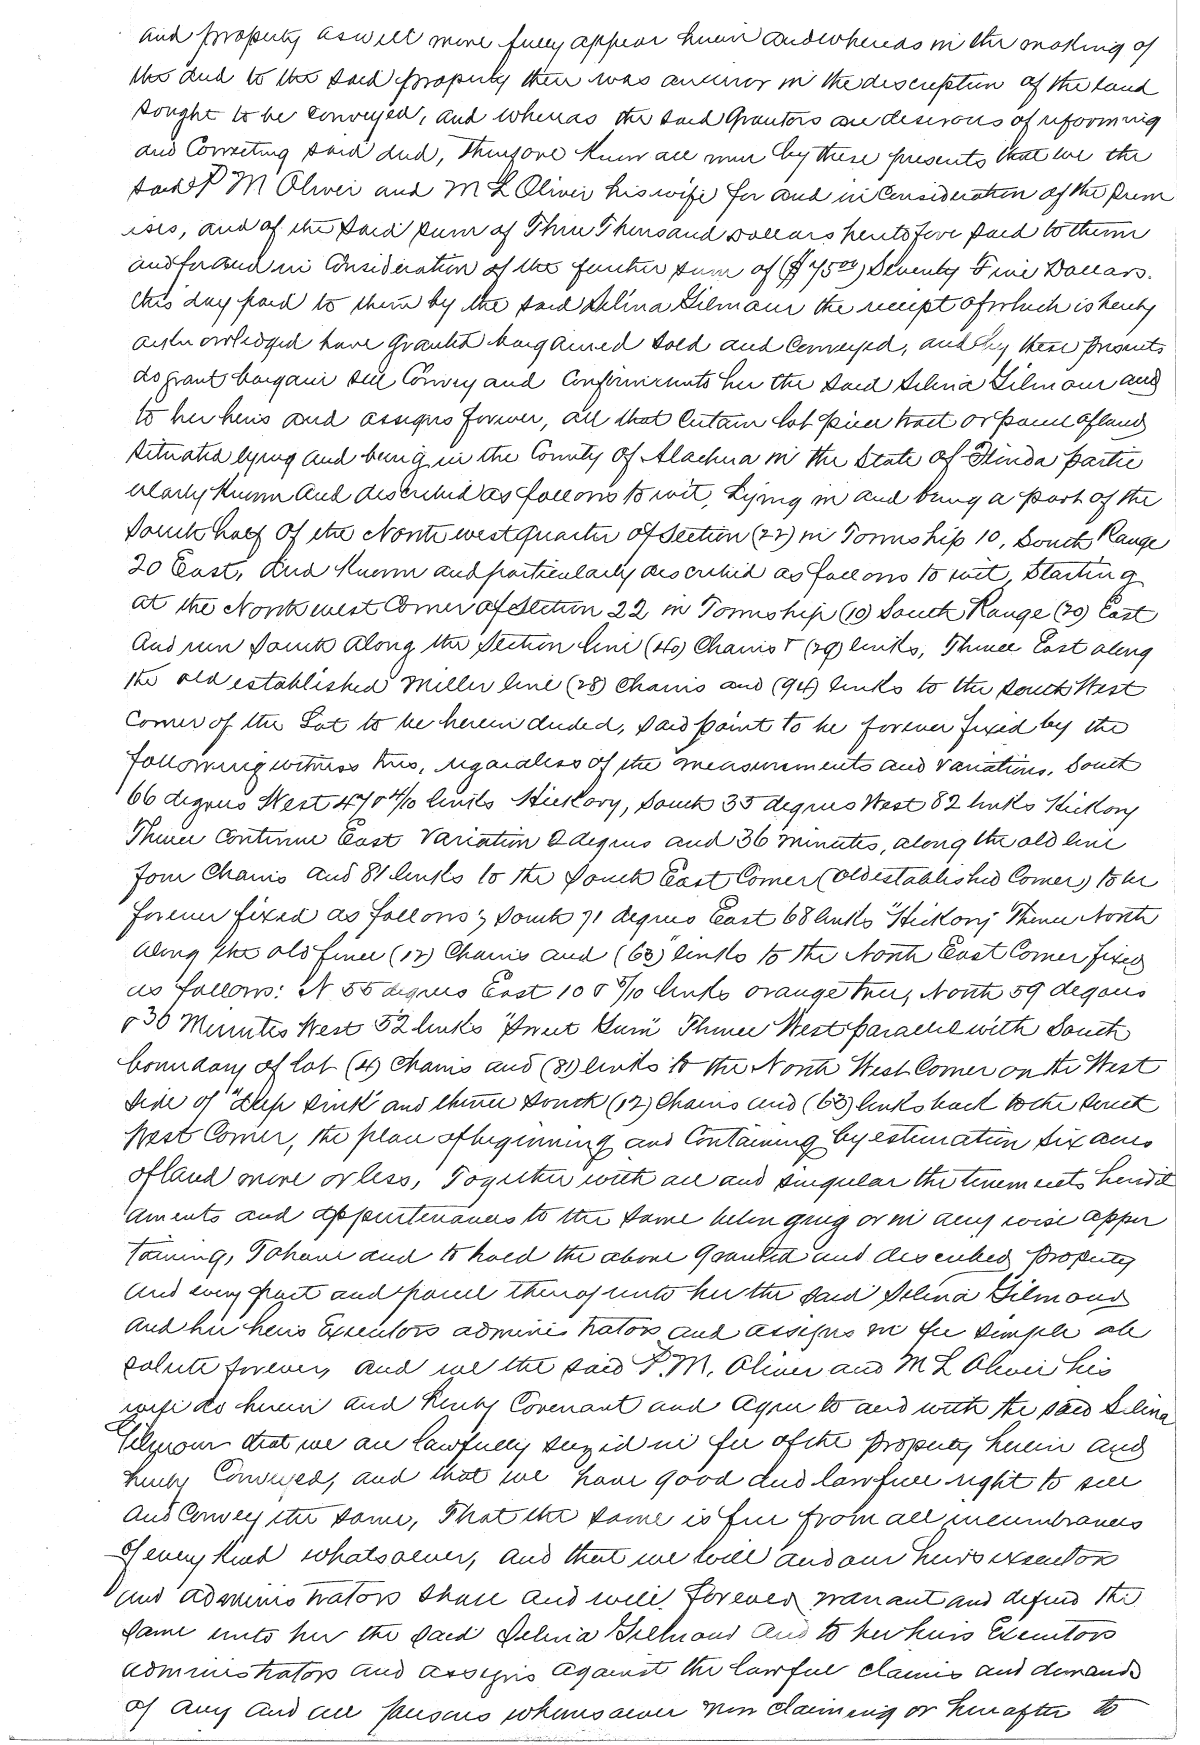 and property as will more fully appear herein and whereas in the making of
the deed to the said property there was an error in the description of the land
sought to be conveyed, and whereas the said Grantors are desirous of reforming
and Correcting said deed, Therefore Know all men by these presents that we the
said P M Oliver and M L Oliver his wife for and in Consideration of the prem
ises, and of the said sum of Three Thousand Dollars heretofore paid to them
and for and in Consideration of the further sum of ($75 00) Seventy Five Dollars.
this day paid to them by the said Selina Gilmour the receipt of which is hereby
acknowledged have granted bargained sold and Conveyed, and by these presents
do grant bargain sell Convey and Confirm unto her the said Selina Gilmour and
to her heirs and assigns forever, all that Certain lot piece tract or parcel of land
situated lying and being in the County of Alachua in the State of Florida partic
ularly Known and described as follows to wit, Lying in and being a part of the
South half of the North west quarter of Section (22) in Township 10, South Range
20 East, and Known and particularly described as follows to wit, Starting
at the North west Corner of Section 22 in Township (10) South Range (20) East
And run South along the Section line (40) Chains & (29) links, Thence East along
the old established Miller line (28) Chains and (94) links to the South West
Corner of the Lot to be herein deeded, said point to be forever fixed by the
following witness trees, regardless of the measurements and variations. South
66 degrees West 47 & 4/10 links Hickory, South 35 degrees West 82 links Hickory
Thence Continue East Variation 2 degrees and 36 minutes, along the old line
four Chains and 81 links to the South East Corner (old established Corner) to be
forever fixed as follows; South 71 degrees East 68 links "Hickory" Thence North
along the old fence (12) Chains and (63) links to the North East Corner fixed
as follows: N 55 degrees East 10 & 5/10 links orange tree, North 59 degrees
& 30 Minutes West 52 links "Sweet Gum" Thence West parallel with South
boundary of lot (4) Chains and (81) links to the North West Corner on the West
side of "deep sink" and thence South (12) Chains and (63) links back to the South
West Corner, the place of beginning and Containing by estimation six acres
of land more or less, Together with all and singular the tenements heredit
aments and appurtenances to the same belonging or in any wise apper
taining, To have and to hold the above granted and described property
and every part and parcel thereof unto her the said Selina Gilmour
and her heirs Executors administrators and assigns in fee simple ab
solute forever, and we the said P. M. Oliver and M L Oliver his
wife do herein and hereby Covenant and Agree to and with the said Selina
Gilmour that we are lawfully seized in fee of the property herein and
hereby Conveyed, and that we have good and lawful right to sell
and Convey the same, That the same is free from all incumbrances
of every kind whatsoever, and that we will and our heirs executors
and administrators shall and will forever warrant and defend the
same unto her the said Selina Gilmour and to her heirs Executors
administrators and assigns against the lawful claims and demands
of any and all persons whomsoever now claiming or hereafter to